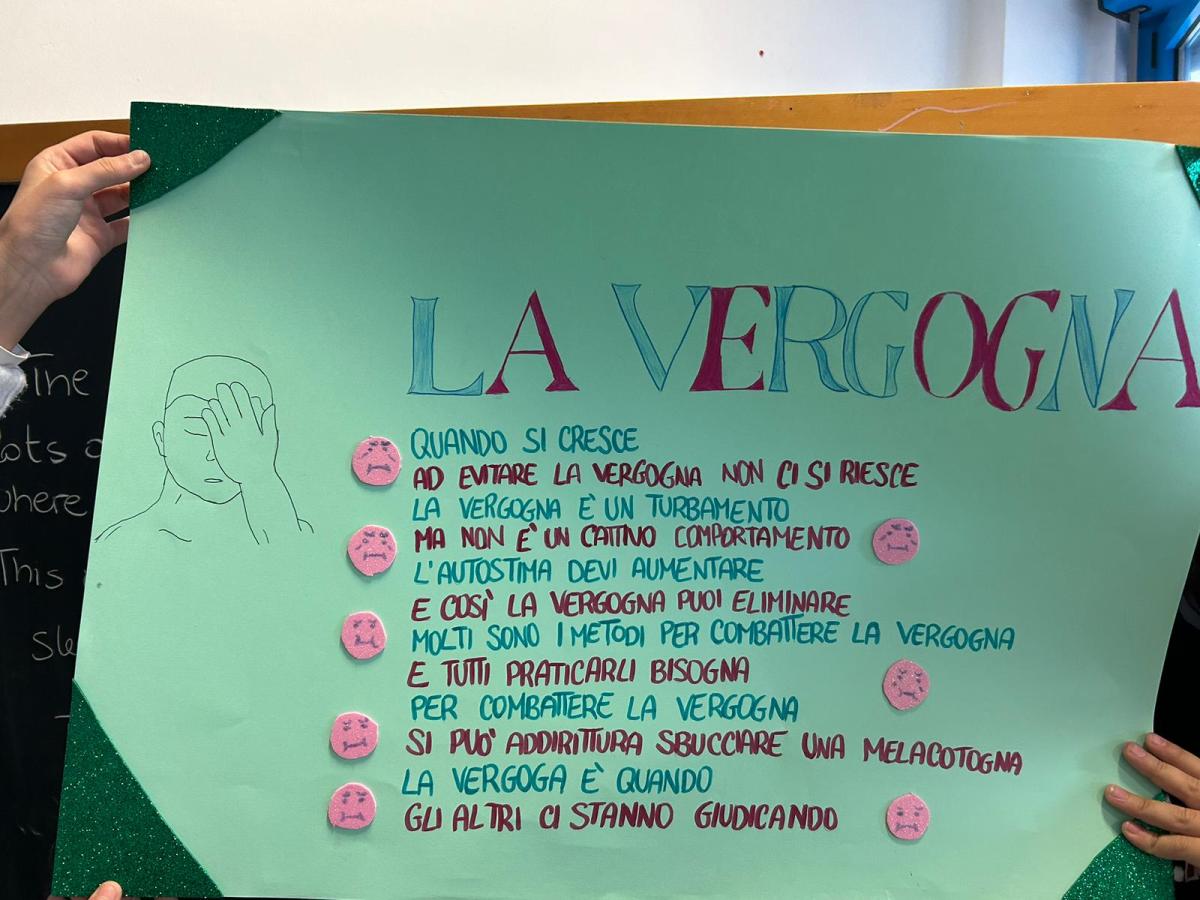 LA VERGOGNA
QUANDO SI CRESCE
AD EVITARE LA VERGOGNA NON CI SI RIESCE
LA VERGOGNA È UN TURBAMENTO
MA NON E' UN CATTIVO COMPORTAMENTO
L'AUTOSTIMA DEVI AUMENTARE
E COSÌ LA VERGOGNA PUOI ELIMINARE
MOLTI SONO I METODI PER COMBATTERE LA VERGOGNA
E TUTTI PRATICARLI BISOGNA
PER COMBATTERE LA VERGOGNA
SI PUO' ADDIRITTURA SBUCCIARE UNA MELACOTOGNA
LA VERGOGA È QUANDO
GLI ALTRI CI STANNO GIUDICANDO
where
This